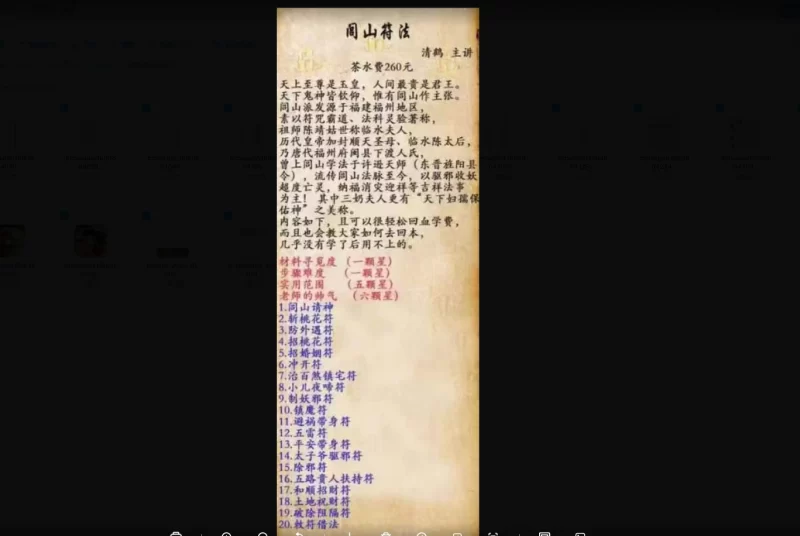 闾山符法
清鹤 主讲
茶水费260元
天上至尊是玉皇，人间最贵是君王。
天下鬼神皆钦仰，惟有闾山作主张。
闾山派发源于福建福州地区，
素以符咒霸道、法科灵验著称，
祖师陈靖姑世称临水夫人，
历代皇帝加封顺天圣母、临水陈太后，
乃唐代福州府闽县下渡人氏，
曾上闾山学法于许逊天师（东晋旌阳县
令），流传闾山法脉至今，以驱邪收妖
超度亡灵，纳福消灾迎祥等吉祥法事
为主！其中三奶夫人更有“天下妇孺保
佑神”之美称。
内容如下，且可以很轻松回血学费，
而且也会教大家如何去回本，
几乎没有学了后用不上的。
材料寻觅度 （一颗星）
步骤难度 （一颗星）
实用范围 （五颗星）
老师的帅气 （六颗星）
1.闾山请神
2.斩桃花符
3.防外遇符
4.招桃花符
5.招婚姻符
6.冲开符
7.治百煞镇宅符
8.小儿夜啼符
9.制妖邪符
10.镇魔符
11.避祸带身符
12.五雷符
13.平安带身符
14.太子爷驱邪符
15.除邪符
16.五路贵人扶持符
17.和顺招财符
18.土地祝财符
19.破除阻隔符
20.敕符借法